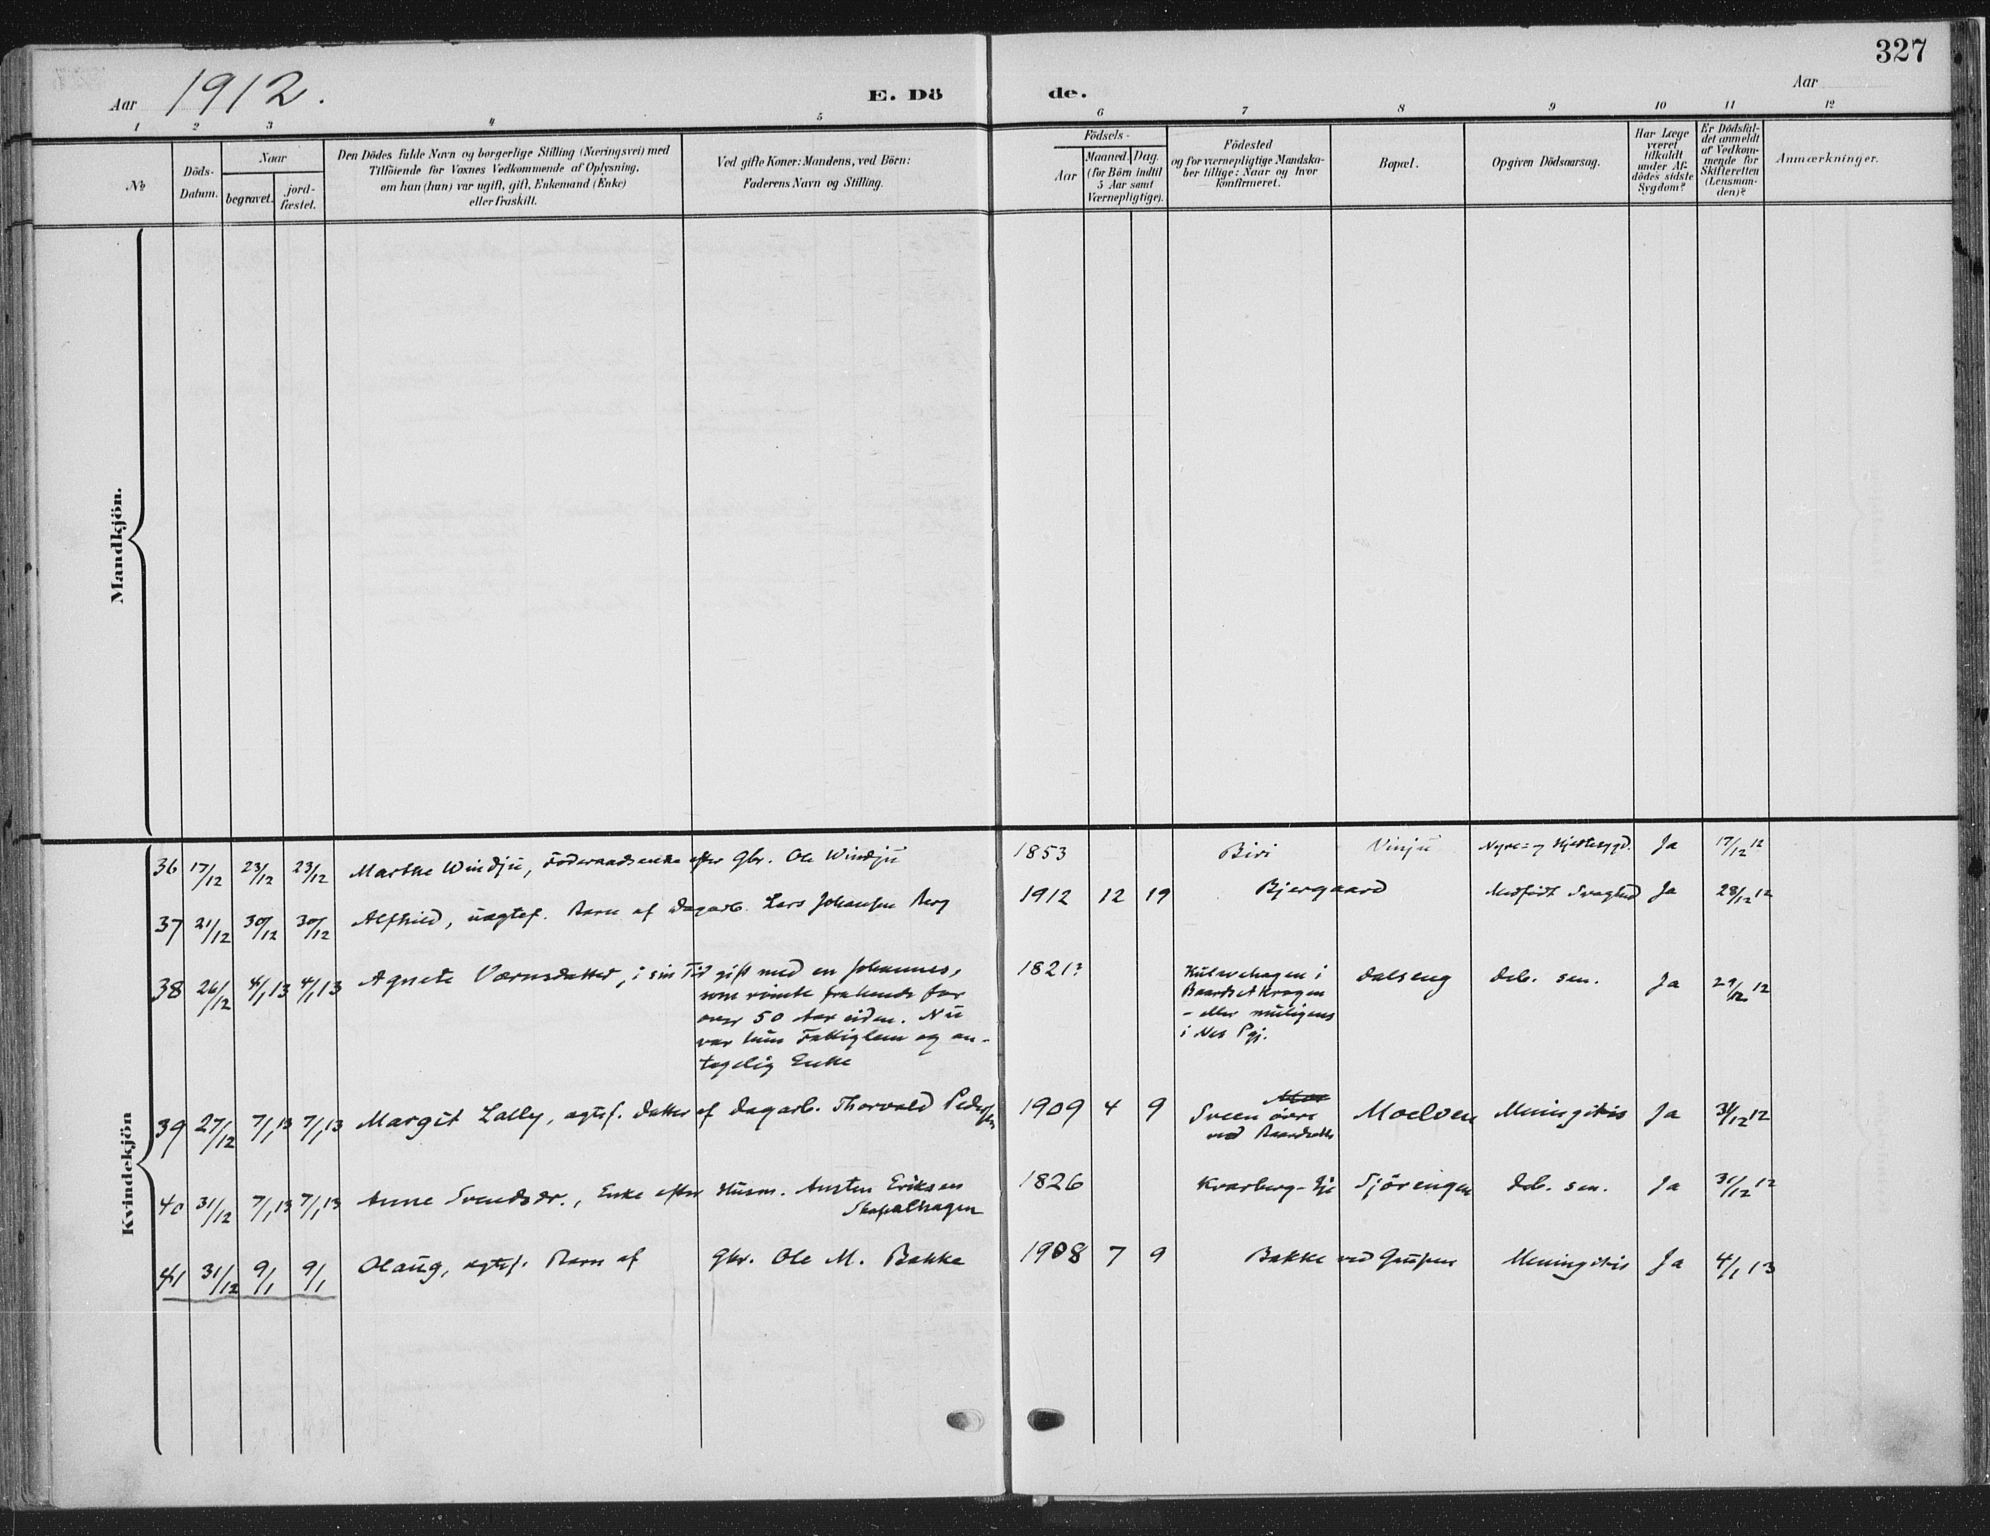 327
Aar 1912.
E. Döde.
Aar
1 2 3 4 5 6 7 8 9 10 11 12
No
Döds-Datum.
Naar
begravet.
jord-fæstet.
Den Dödes fulde Navn og borgerlige Stilling (Næringsvei) med
Tilföiende for Voxnes Vedkommende af Oplysning,
om han (hun) var ugift, gift, Enkemand (Enke)
eller fraskilt.
Ved gifte Koner: Mandens, ved Börn:
Faderens Navn og Stilling.
Födsels-
Aar
Maaned. Dag.
(for Börn indtil
5 Aar samt
Værnepligtige).
Födested
og for værnepligtige Mandska-
ber tillige: Naar og hvor
konfirmeret.
Bopæl.
Opgiven Dödsaarsag.
Har Læge
været
tilkaldt
under Af-
dödes sidste
Sygdom?
Er Dödsfal-
det anmeldt
af Vedkom-
mende for
Skifteretten
(Lensman-
den)?
Anmærkninger.
Mandkjön.
Kvindekjön
36 17/12 23/12 23/12 Marthe Windju, Föderaadsenke efter Gbr. Ole Windju 1853 Biri Vinju Nyre- og Hjertesygd. Ja 17/12 12
37 21/12 30/12 30/12 Alfhild, uægtef. Barn af Dagarb. Lars Johansen Berg 1912 12 19 Bjergaard Medfödt Svaghed Ja 28/12 12
38 26/12 4/1 13 4/1 13 AgneteVærnsdatter, i sin Tid gift med en Johannes,
som reiste fra hende for
over 50 Aar siden. Nu
var hun Fattiglem og an-
tagelig Enke
1821?
i
Baardset
- eller muligens
i Nes Pgj.
Dalseng Deb. sen. Ja 29/12 12
39 27/12 7/1 13 7/1 13 Margit Lally, ægtef. Datter af Dagarb. Thorvald Pedersen 1909 4 9
Sveen övre
ved Baardseth
Moelven Meningitis Ja 31/12 12
40 31/12 7/1 13 7/1 13 Anne Svendsdr., Enke efter Husm. Austen Eriksen
1826 Kvarberg-Eje Sjörengen Deb. sen. Ja 31/12 12
41 31/12 9/1 9/1 Olaug, ægtef. Barn af Gbr. Ole M. Bakke 1908 7 9 Bakke ved Meningitis Ja 4/1 13